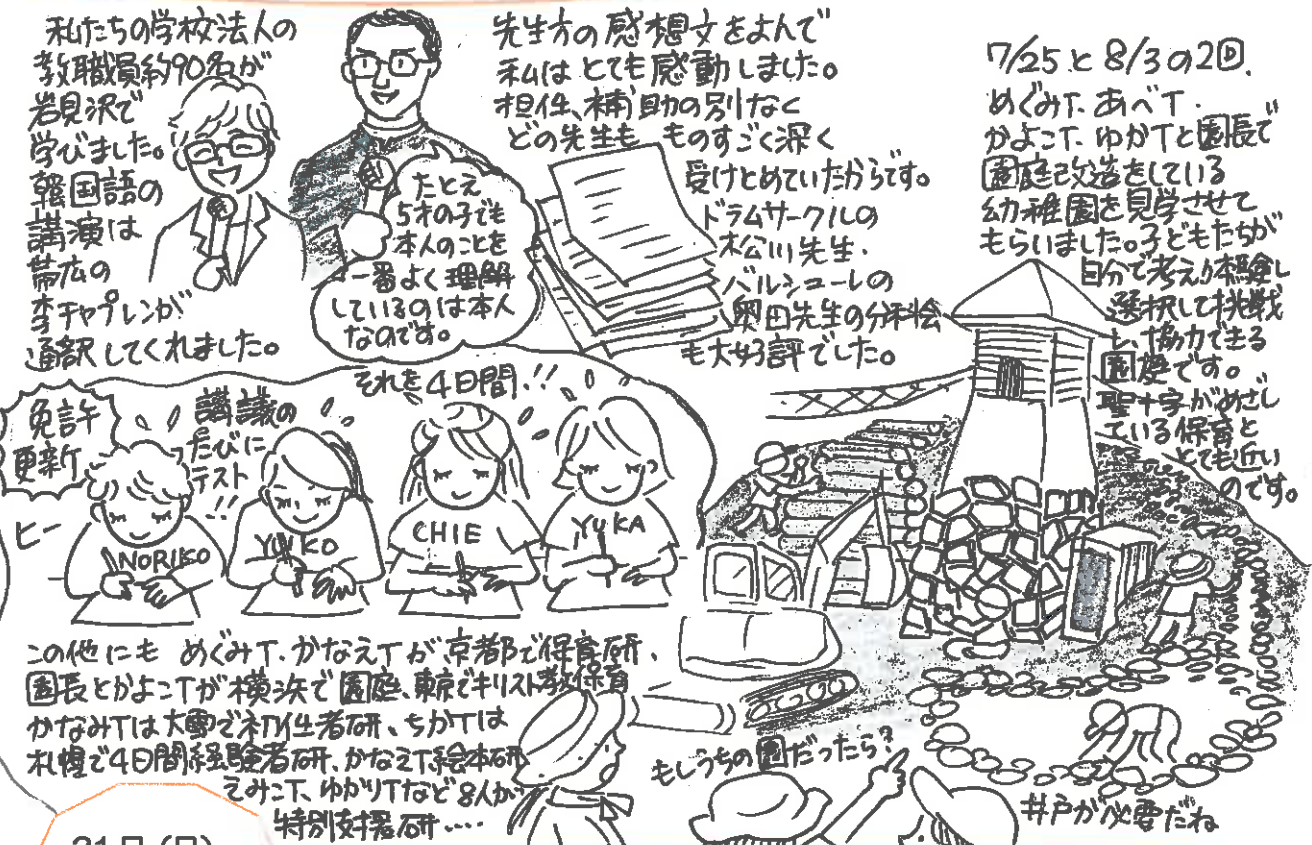 私たちの学校法人の
教職員約90名が
岩見沢で
学びました。
韓国語の
講演は
帯広の
李チャプレンが
通訳してくれました。
たとえ
5才の子でも
本人のことを
一番よく理解
しているのは本人
なのです。
先生方の感想文をよんで
私はとても感動しました。
担任、補助の別なく
どの先生も ものすごく深く
受けとめていたからです。
ドラムサークルの
松川先生・
バルシューレの
奥田先生の分科会
も大好評でした。
7/25と8/3の2回、
めぐみT. あべT.
かよこT. ゆかTと園長で
園庭改造をしている
幼稚園を見学させて
もらいました。子どもたちが
自分で考え、体験し
選択して挑戦
し、協力できる
園庭です。
聖十字がめざし
ている保育と
とても近い
のです。
それを4日間!!
免許
更新
講議の
たびに
テスト
!!
ヒー
NORIKO
YUKO
CHIE
YUKA
この他にも めぐみT. かなえTが京都で保育研、
園長とかよこTが横浜で園庭、東京でキリスト教保育
かなみTは大雪で初任者研、ちかTは
札幌で4日間経験者研、かなえT絵本研
えみこT、ゆかりTなど8人が
特別支援研‥‥
もしうちの園だったら?
井戸が必要だね